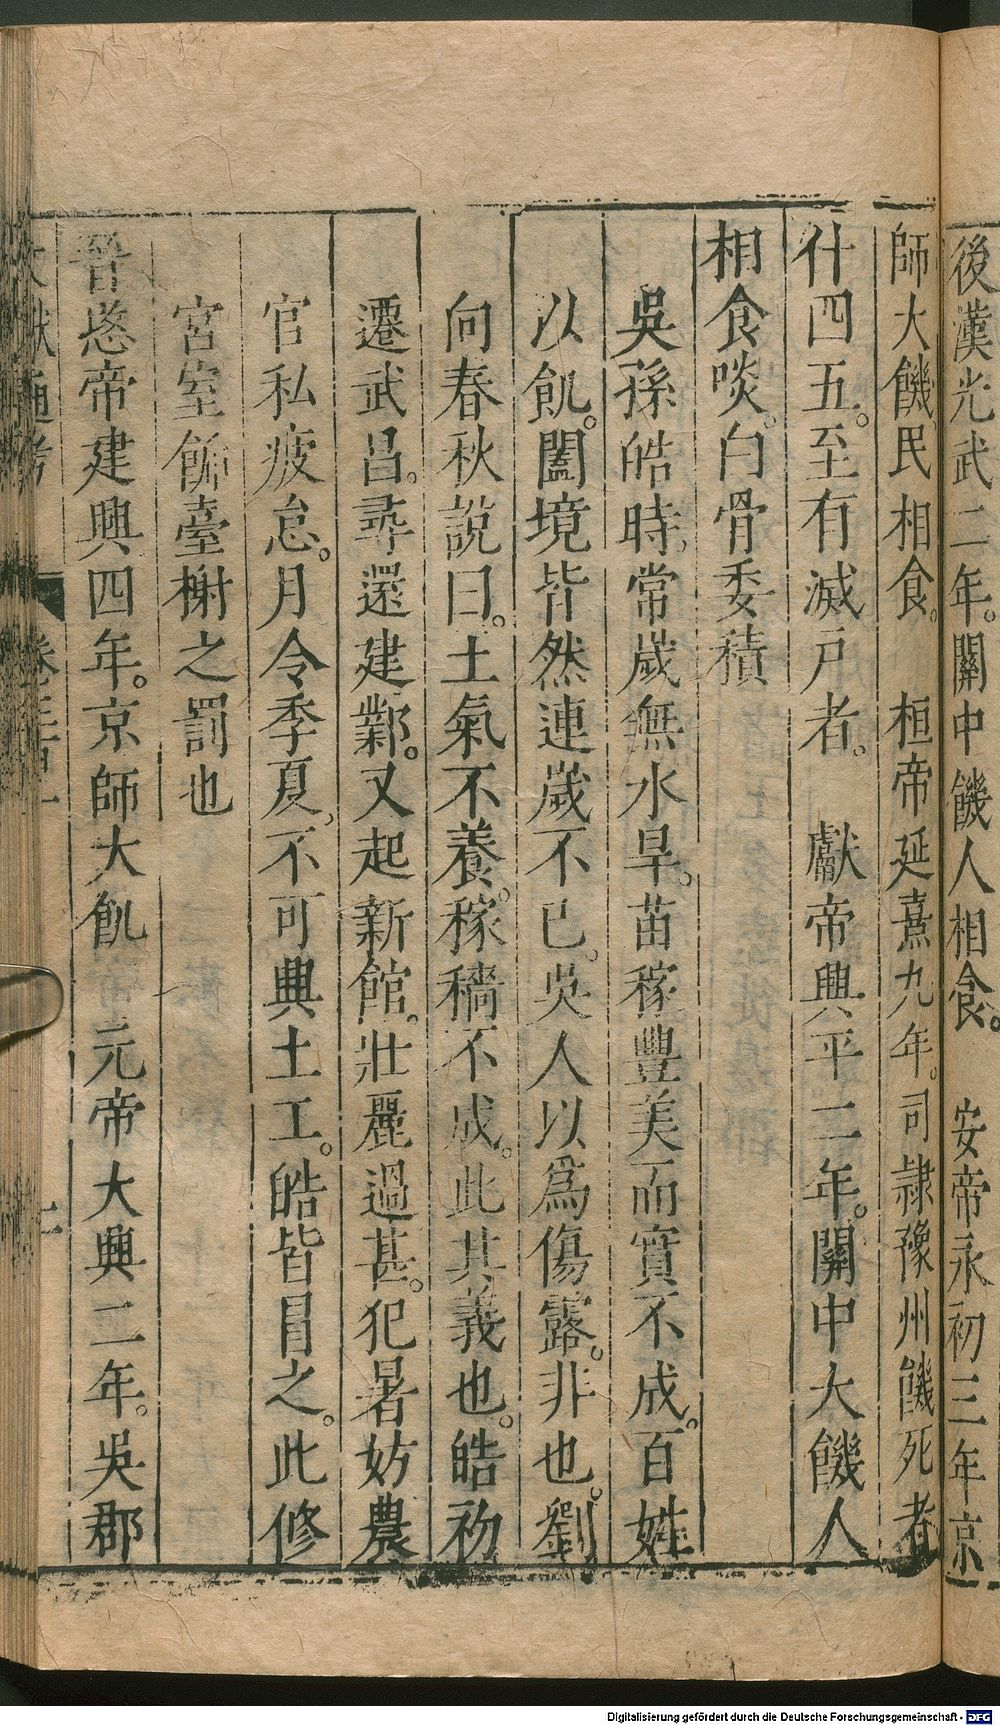 後漢光武二年。關中饑人相食。　安帝永初三年京
師大饑民相食。　桓帝延熹九年。司隸豫州饑死者
什四五。至有滅戸者。　獻帝興平二年。關中大饑人
相食啖。白骨委積
吳孫皓時。常歲無水旱。苗稼豐美而實不成。百姓
以飢。闔境皆然連歲不已。吳人以爲傷露。非也。劉
向春秋說曰。土氣不養。稼穡不成。此其義也。皓初
遷武昌。尋還建鄴。又起新館。壯麗過甚。犯暑妨農
官私疲怠。月令季夏。不可興土工。皓皆冒之。此修
宮室飾臺榭之罰也
晉愍帝建興四年。京師大飢　元帝大興二年。吳郡
文獻通考　卷三百一　二
Digitalisierung gefördert durch die Deutsche Forschungsgemeinschaft - DFG